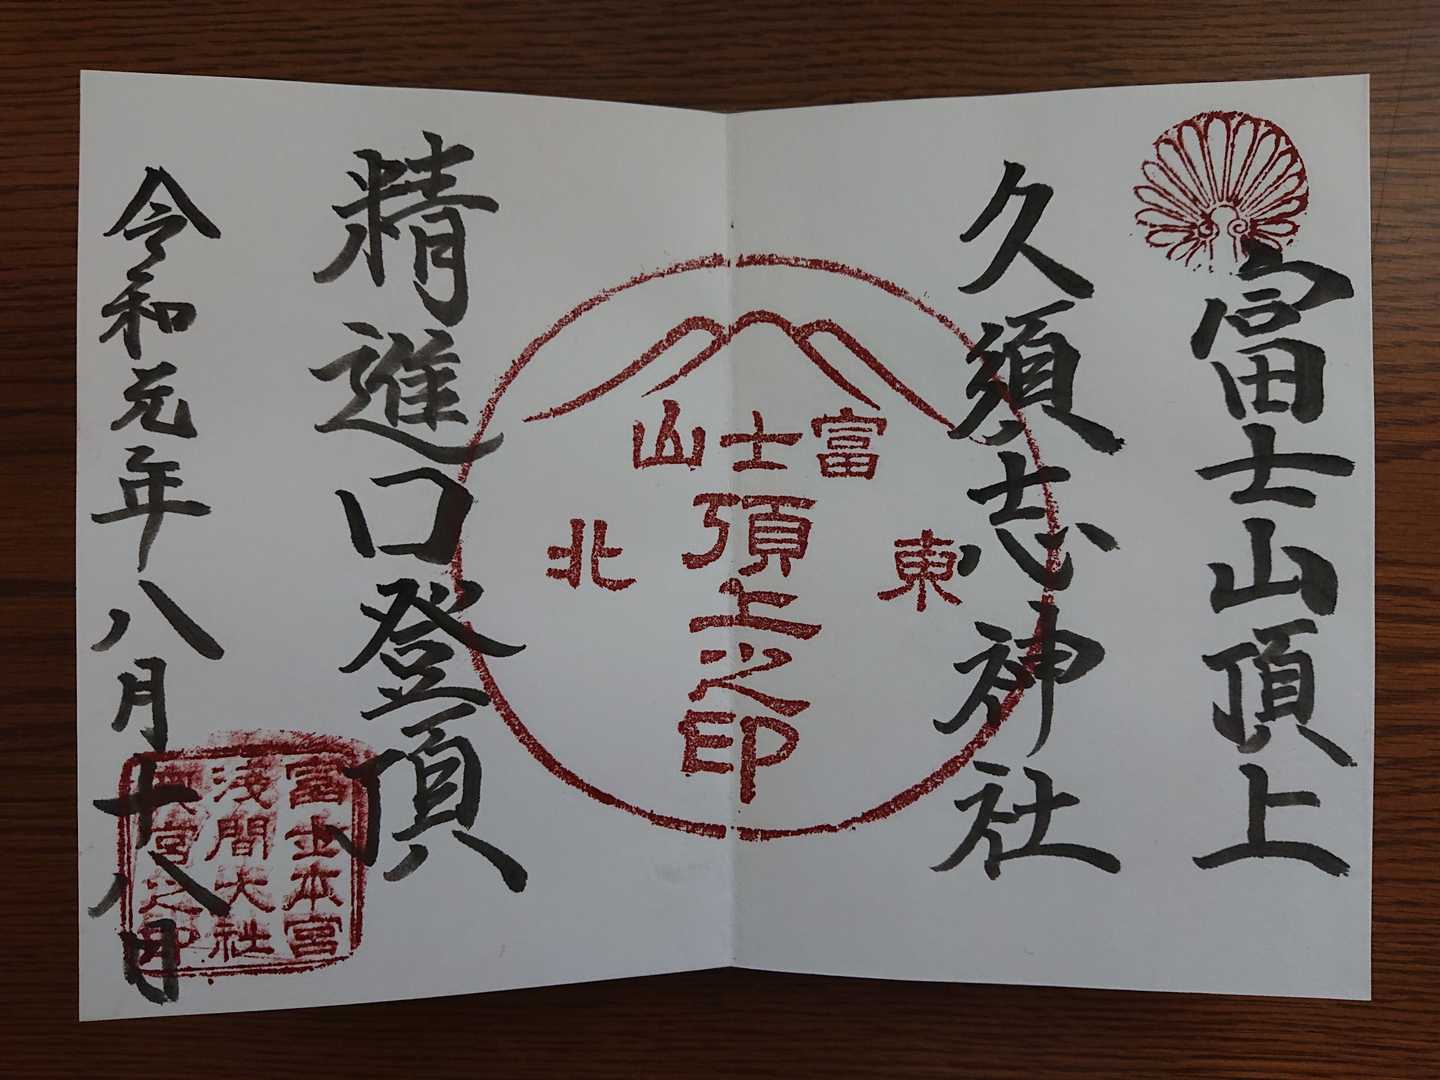 富士山頂上
久須志神社
富士山
頂上之印
東
北
精進口登頂
令和元年八月十八日
富士山本宮
淺間大社
奥宮之印